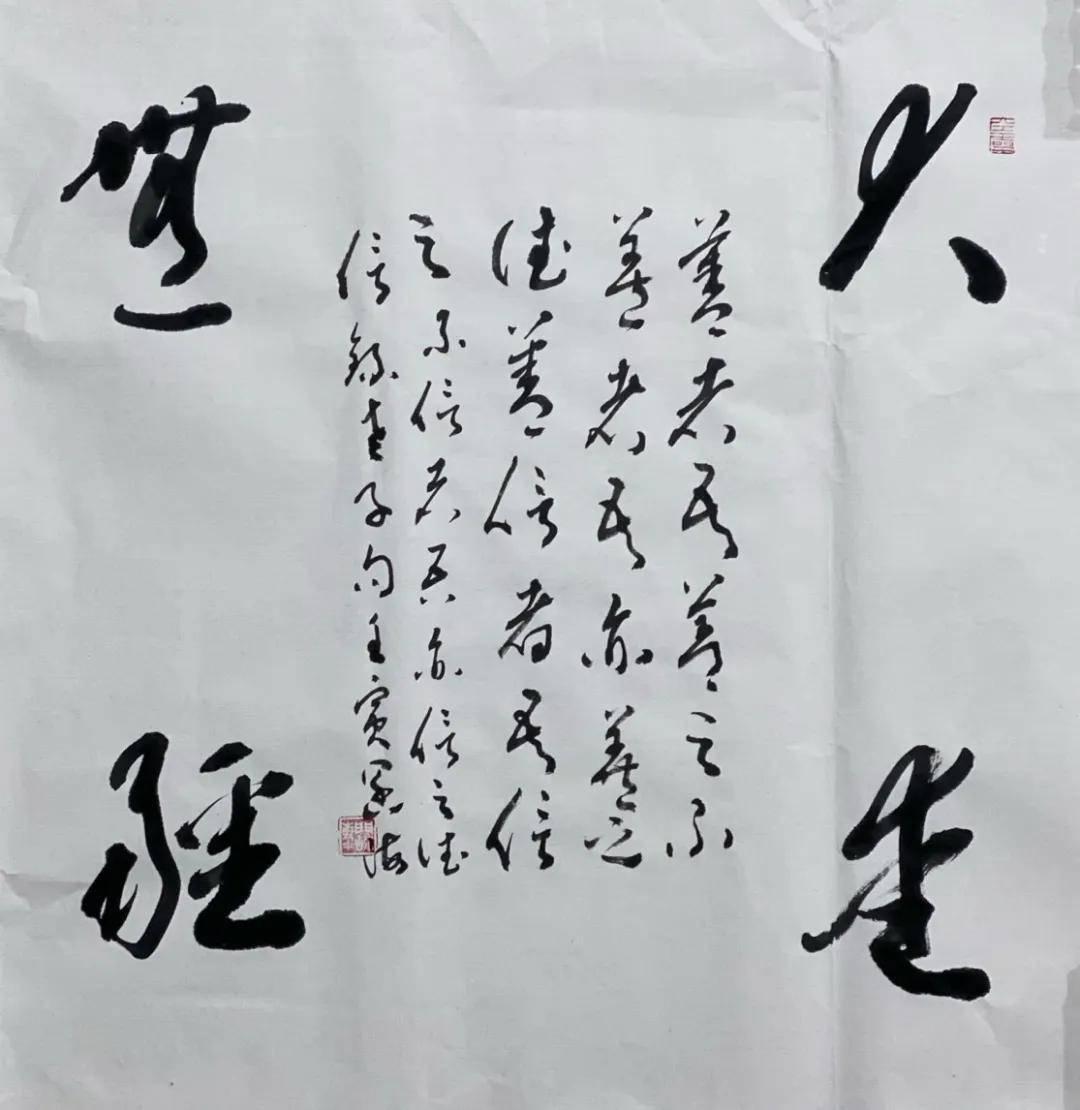 大愛
無疆
善者吾善之不
善者吾亦善之
德善信者吾信
之不信者吾亦信之德
信錄老子句壬寅